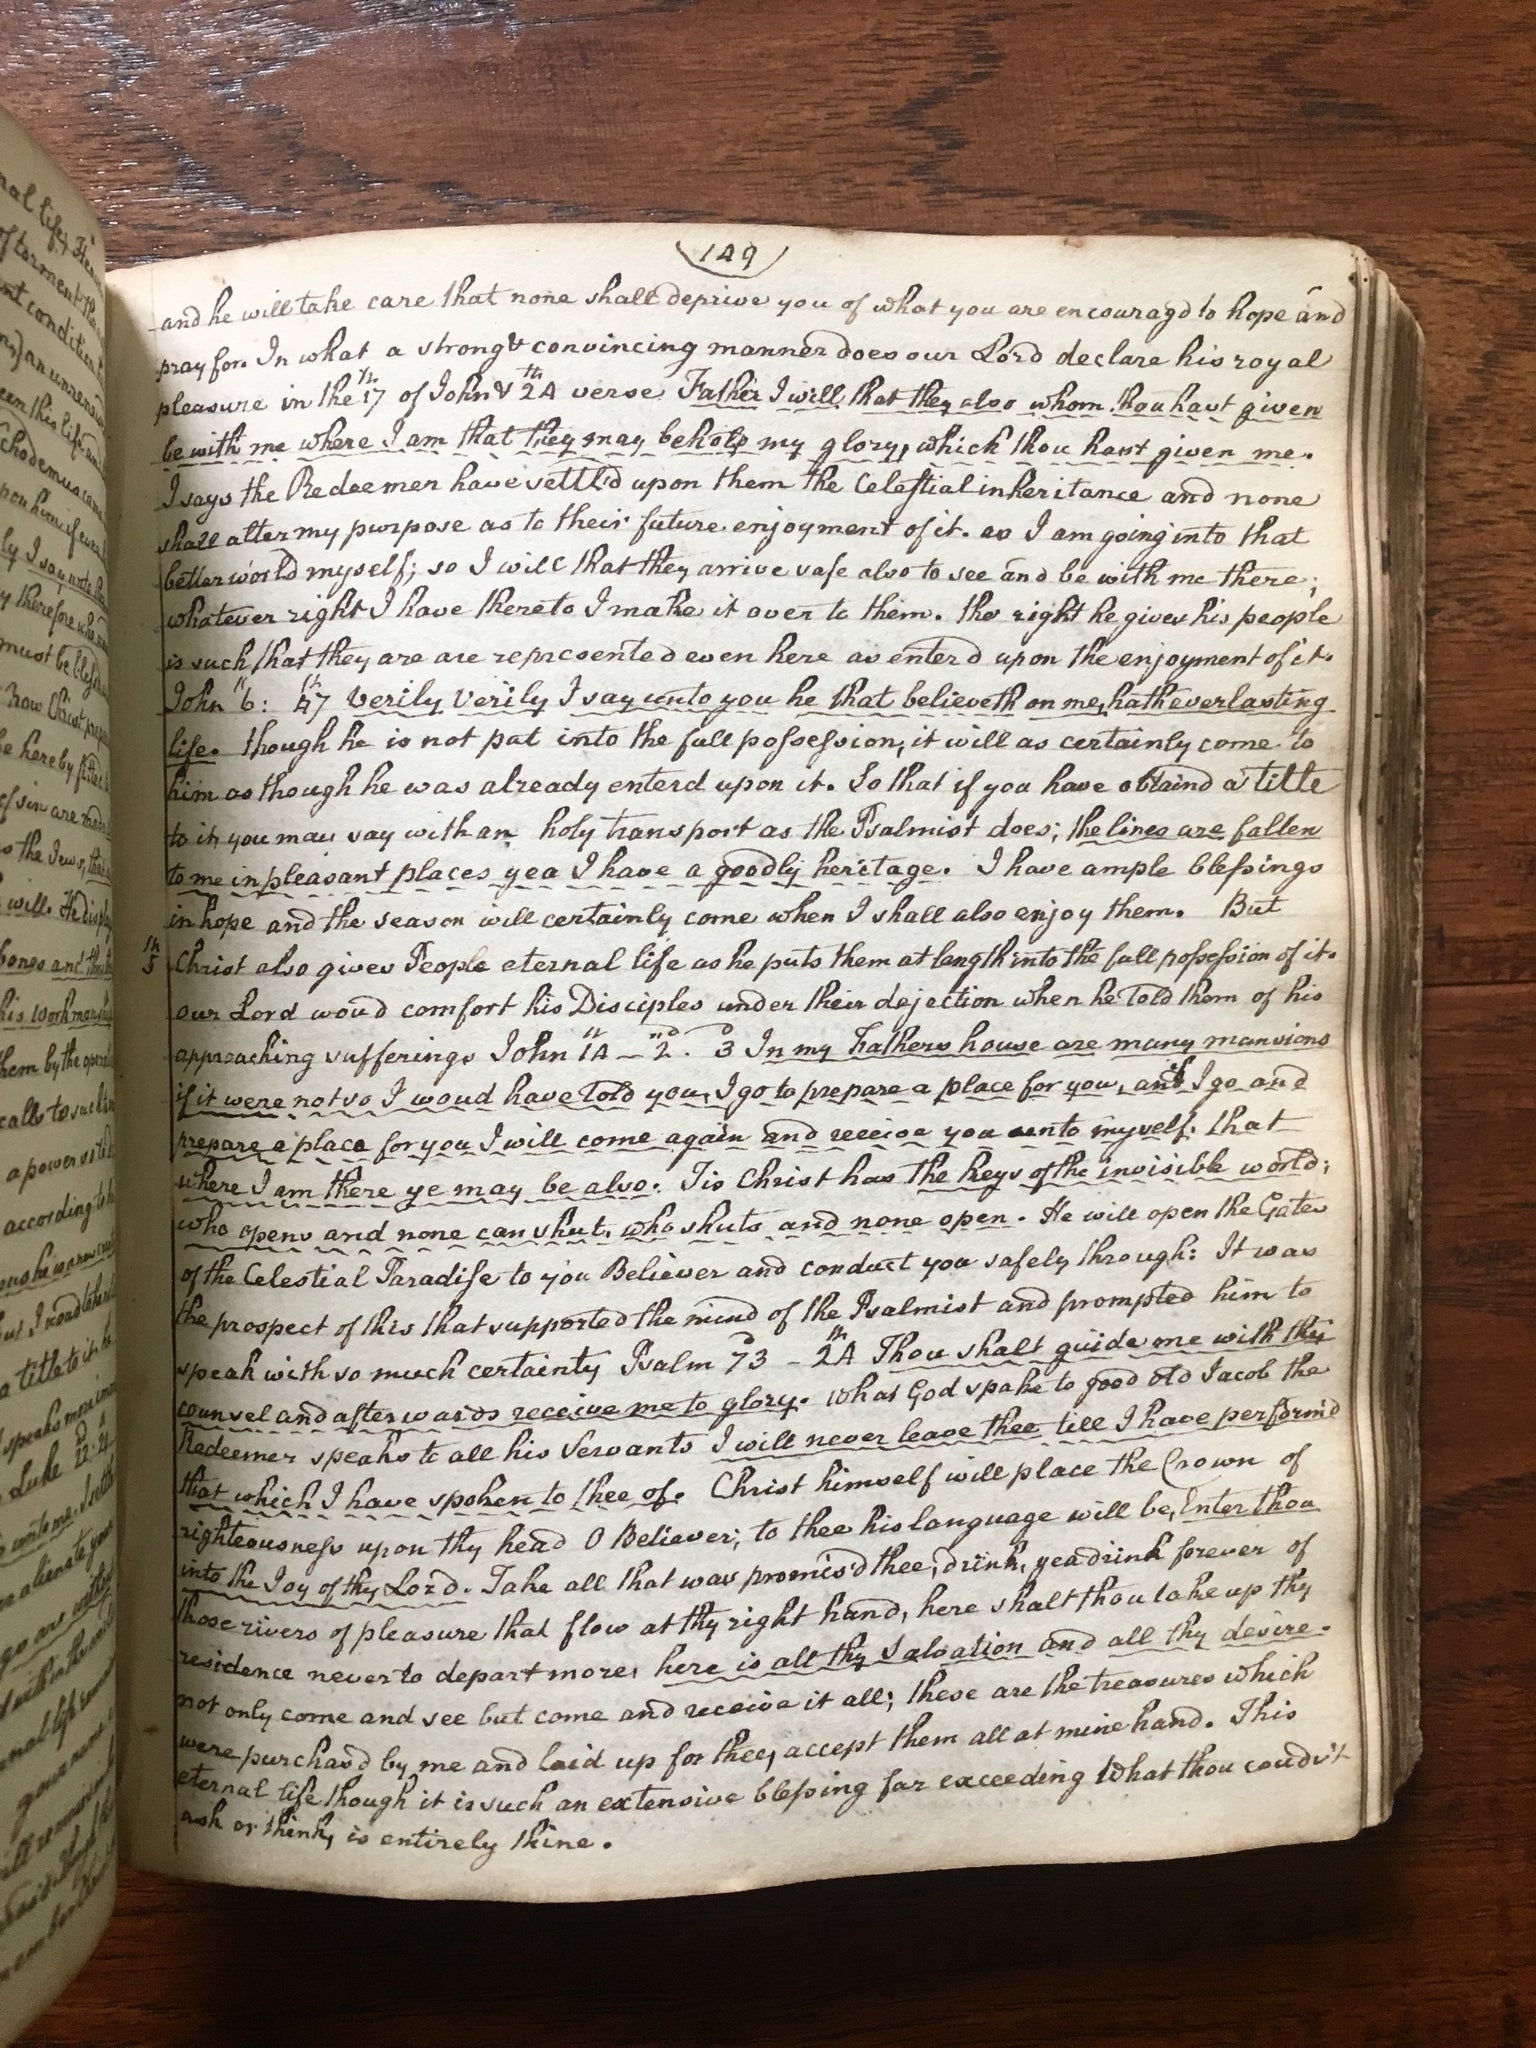 149
and he will take care that none shall deprive you of what you are encouragd to hope and
pray for. In what a strong & convincing manner does our Lord declare his royal
pleasure in the 17th of John & 24th verse Father I will that they also whom thou hast given
be with me where I am that they may behold my glory, which thou hast given me.
I says the Redeemer have settl'd upon them the Celestial inheritance and none
shall alter my purpose as to their future enjoyment of it. as I am going into that
better world myself; so I will that they arrive safe also to see and be with me there;
whatever right I have thereto I make it over to them. the right he gives his people
is such that they are are represented even here as enterd upon the enjoyment of it.
John 6th: 47th Verily Verily I say unto you he that believeth on me, hath everlasting
life. though he is not put into the full possession, it will as certainly come to
him as though he was already enterd upon it. So that if you have obtaind a title
to it, you may say with an holy transport as the Psalmist does; the lines are fallen
to me in pleasant places yea I have a goodly heritage. I have ample blessings
in hope and the season will certainly come when I shall also enjoy them. But
5th Christ also gives People eternal life as he puts them at length into the full possession of it.
our Lord woud comfort his Disciples under their dejection when he told them of his
approaching sufferings John 14th - 2nd. 3d In my Fathers house are many mansions
if it were not so I woud have told you, I go to prepare a place for you, and if I go and
prepare a place for you I will come again and receive you unto myself. that
where I am there ye may be also. Tis Christ has the keys of the invisible world;
who opens and none can shut, who shuts and none open. He will open the Gates
of the Celestial Paradise to you Believer and conduct you safely through: It was
the prospect of this that supported the mind of the Psalmist and prompted him to
speak with so much certainty Psalm 73d - 24th Thou shalt guide me with thy
counsel and afterwards receive me to glory. what God spake to good old Jacob the
Redeemer speaks to all his Servants I will never leave thee till I have perform'd
that which I have spoken to thee of. Christ himself will place the Crown of
righteousness upon thy head O Believer; to thee his language will be, Enter thou
into the Joy of thy Lord. Take all that was promis'd thee, drink, yea drink forever of
those rivers of pleasure that flow at thy right hand, here shalt thou take up thy
residence never to depart more, here is all thy Salvation and all thy desire.
not only come and see but come and receive it all; these are the treasures which
were purchasd by me and laid up for thee, accept them all at mine hand. This
eternal life though it is such an extensive blessing far exceeding what thou coudst
ask or think, is entirely thine.